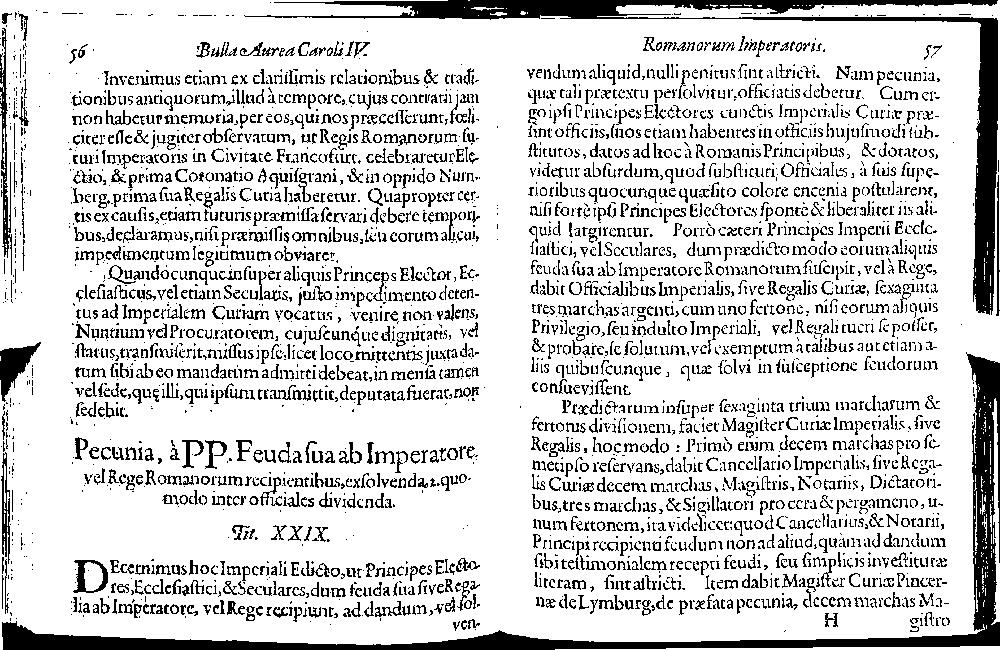 56 Bulla Aurea Caroli IV.
Invenimus etiam ex clarissimis relationibus & tradi-
tionibus antiquorum, illud à tempore, cujus contrarii jam
non habetur memoria, per eos, qui nos præcesserunt, fœli-
citer esse & jugiter observatum, ut Regis Romanorum fu-
turi Imperatoris in Civitate Francofurt. celebraretur Ele-
ctio, & prima Coronatio Aquisgrani, & in oppido Nurn-
berg, prima sua Regalis Curia haberetur. Quapropter cer-
tis ex causis, etiam futuris præmissa servari debere tempori-
bus, declaramus, nisi præmissis omnibus, seu eorum alicui,
impedimentum legitimum obviaret.
Quandocunque insuper aliquis Princeps Elector, Ec-
clesiasticus, vel etiam Secularis, justo impedimento deten-
tus ad Imperialem Curiam vocatus, venire non valens,
Nuntium vel Procuratorem, cujuscunque dignitatis, vel
status, transmiserit, missus ipse, licet loco mittentis juxta da-
tum sibi ab eo mandatum admitti debeat, in mensa tamen
vel sede, quę illi, qui ipsum transmittit, deputata fuerat, non
sedebit.
Pecunia, à PP. Feuda sua ab Imperatore,
vel Rege Romanorum recipientibus, exsolvenda, 2. quo-
modo inter officiales dividenda.
Tit. XXIX.
DEcernimus hoc Imperiali Edicto, ut Principes Electo-
res, Ecclesiastici, & Seculares, dum feuda sua sive Rega-
lia ab Imperatore, vel Rege recipiunt, ad dandum, vel sol-
ven-
Romanorum Imperatoris. 57
vendum aliquid, nulli penitus sint astricti. Nam pecunia,
quæ tali prætextu persolvitur, officiatis debetur. Cum er-
go ipsi Principes Electores cunctis Imperialis Curiæ præ-
sint officiis, suos etiam habentes in officiis hujusmodi sub-
stitutos, datos ad hoc à Romanis Principibus, & dotatos,
videtur absurdum, quod substituti, Officiales, à suis supe-
rioribus quocunque quæsito colore encenia postularent,
nisi fortè ipsi Principes Electores spontè & liberaliter iis ali-
quid largirentur. Porrò cæteri Principes Imperii Eccle-
siastici, vel Seculares, dum prædicto modo eorum aliquis
feuda sua ab Imperatore Romanorum suscipit, vel à Rege,
dabit Officialibus Imperialis, sive Regalis Curiæ, sexaginta
tres marchas argenti, cum uno fertone, nisi eorum aliquis
Privilegio, seu indulto Imperiali, vel Regali tueri se posset,
& probare, se solutum, vel exemptum à talibus aut etiam a-
liis quibuscunque, quæ solvi in susceptione feudorum
consuevissent.
Prædictarum insuper sexaginta trium marcharum &
fertonis divisionem, faciet Magister Curiæ Imperialis, sive
Regalis, hoc modo: Primò enim decem marchas pro se-
metipso reservans, dabit Cancellario Imperialis, sive Rega-
lis Curiæ decem marchas, Magistris, Notariis, Dictatori-
bus, tres marchas, & Sigillatori pro cera & pergameno, u-
num fertonem, ita videlicet: quod Cancellarius, & Notarii,
Principi recipienti feudum non ad aliud, quàm ad dandum
sibi testimonialem recepti feudi, seu simplicis investituræ
literam, sint astricti. Item dabit Magister Curiæ Pincer-
næ de Lymburg, de præfata pecunia, decem marchas Ma-
H gistro